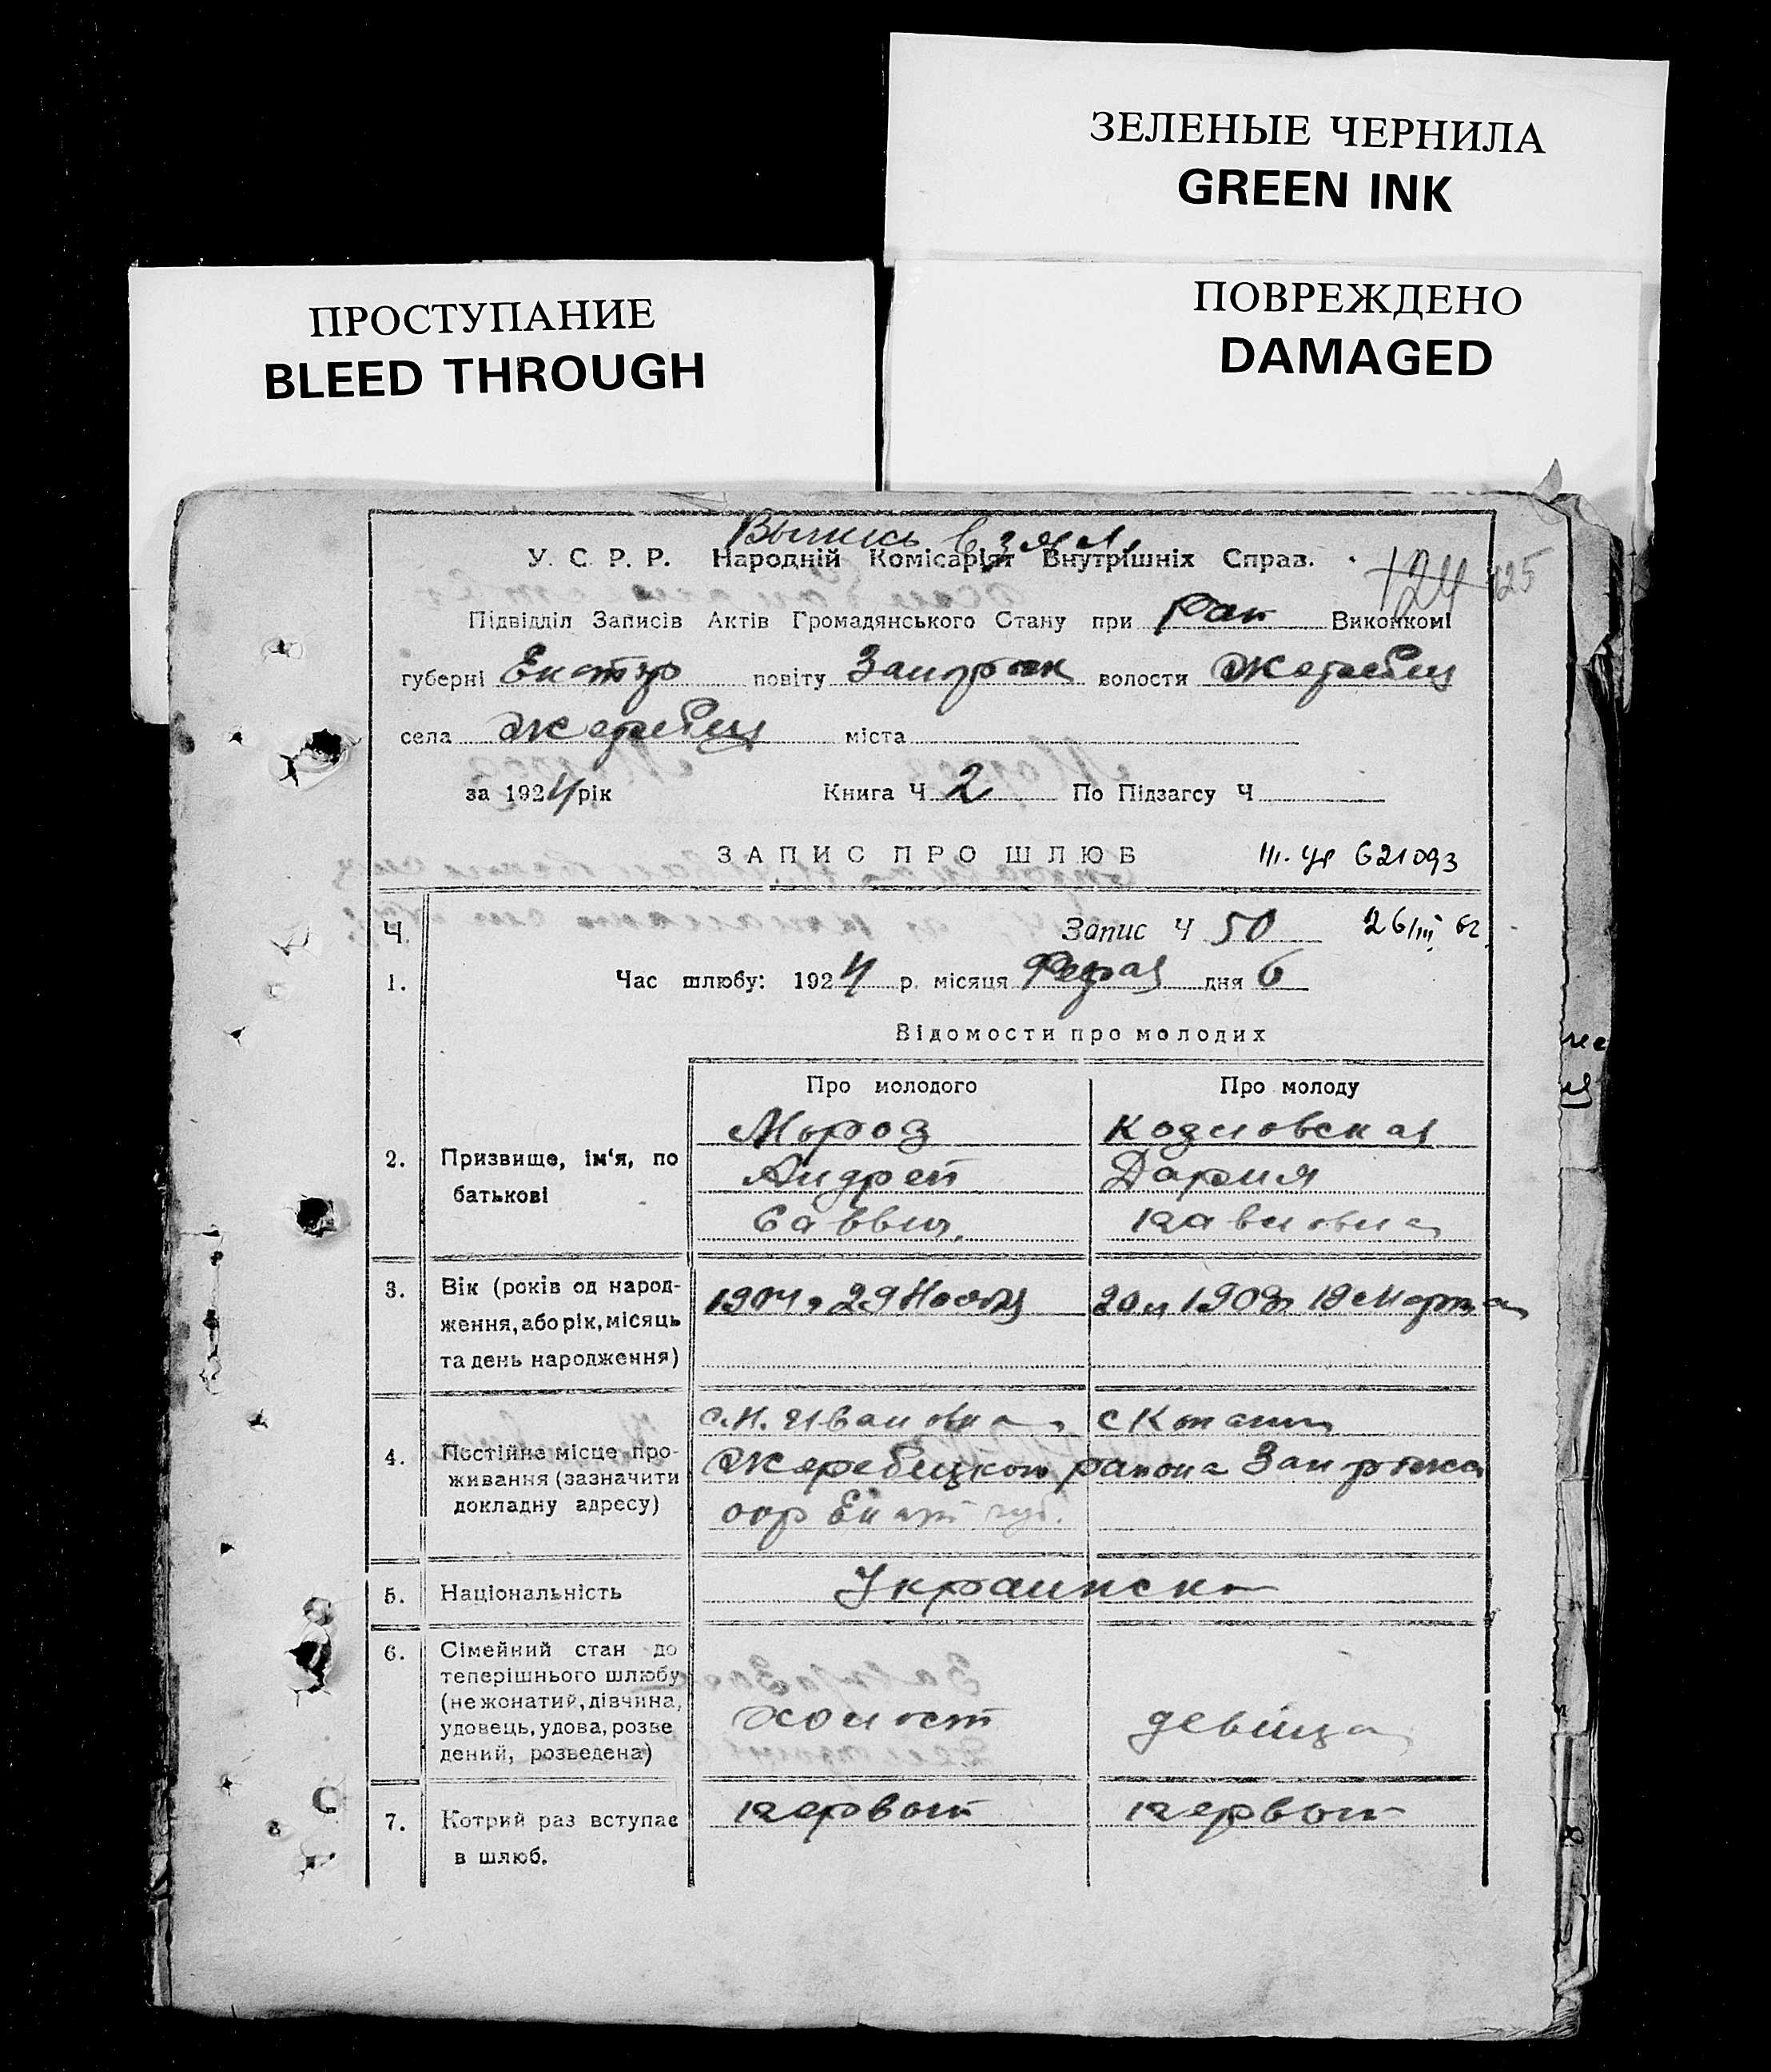 ЗЕЛЕНЫЕ ЧЕРНИЛА
GREEN INK
ПРОСТУПАНИЕ
BLEED THROUGH
ПОВРЕЖДЕНО
DAMAGED
Выпись взял
У. С. Р. Р. Народній Комісаріят Внутрішніх Справ.
124 125
Підвідділ Записів Актів Громадянського Стану при Рай Виконкомі
губерні Екатр повіту Запорож волости Жеребец
села Жеребец міста
за 1924 рік Книга Ч 2 По Підзагсу Ч
ЗАПИС ПРО ШЛЮБ 621093
Ч. Запис Ч 50 26/III 62
1. Час шлюбу: 1924 р. місяця Февраля дня 6
Відомости про молодих
Про молодого Про молоду
Мороз Козловская
2. Призвище, ім‘я, по
Андрей Дария
батькові
Саввич Павловна
3. Вік (років од народ-
1904 г 29 20 л 190 19 Марта
ження, або рік, місяць
та день народження)
с. Н. Ивановка с Копани
4. Постійне місце про-
Жеребецкого района Запорожск
живання (зазначити
докладну адресу)
окр Екат губ.
5. Національність Украинск
6. Сімейний стан до
теперішнього шлюбу
(не жонатий, дівчина,
удовець, удова, розве
дений, розведена)
Холост девица
7. Котрий раз вступає
первый первый
в шлюб.